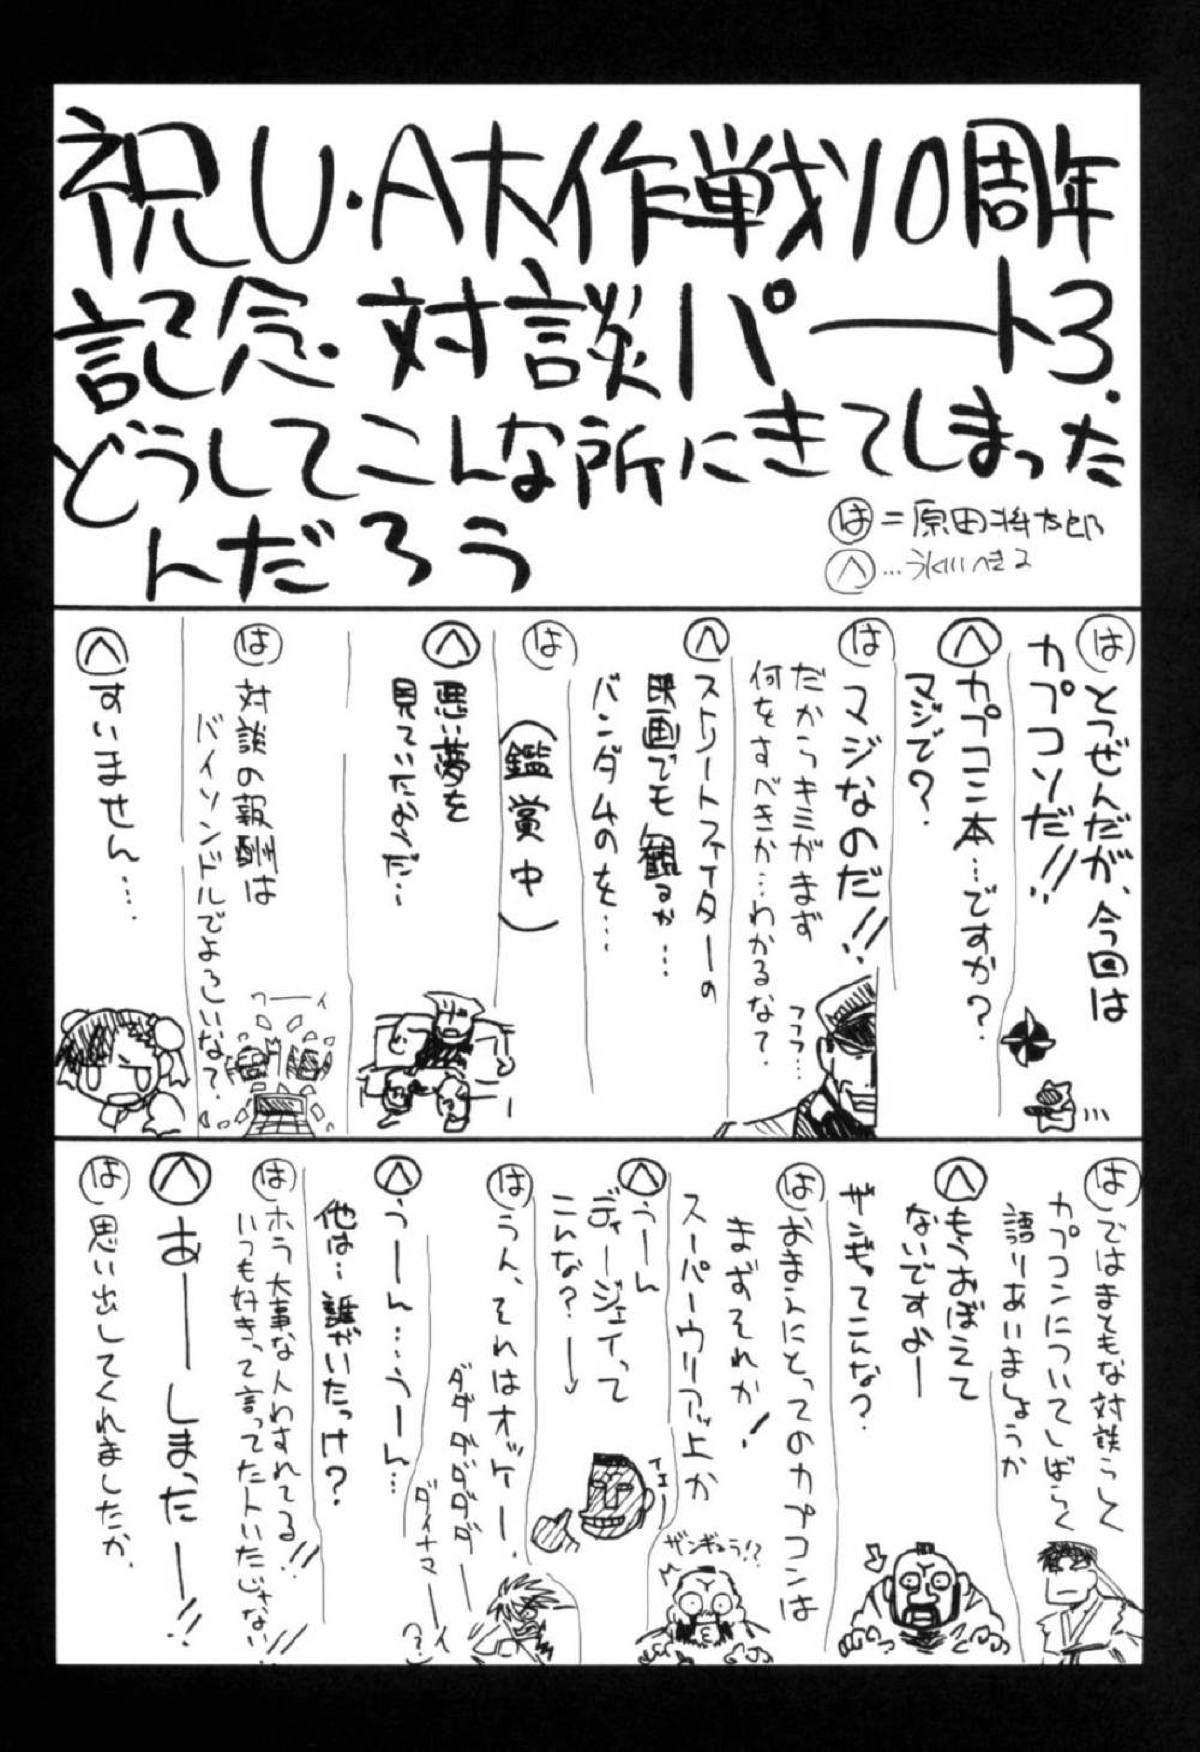 祝U・A大作戦10周年
記念・対談パート3.
どうしてこんな所にきてしまった
んだろう
は=原田将太郎
へ…氷川へきる
は とつぜんだが、今回は
カプコンだ!!
へ カプコン本…ですか?
マジで?
は マジなのだ!!
だからキミがまず
何をすべきか…わかるな?
フフフ…
へ ストリートファイターの
映画でも観るか…
バンダムのを…
は (鑑賞中)
へ 悪い夢を
見ていたようだ…
は 対談の報酬は
バイソンドルでよろしいな?
へ すいません…
は ではまともな対談らしく
カプコンについてしばらく
語りあいましょうか
へ もうおぼえて
ないですよー
ザンギってこんな?
は おまえにとってのカプコンは
まずそれか!
スーパーウリアッ上か
ザンギュラ!?
へ うーん
ディージェイって
こんな?→
イエー
は うん、それはオッケー。
ダダダダダダー
ダイナマーイ
(?)
へ うーん…うーん…
他は…誰がいたっけ?
は ホラ大事な人わすれてる!!
いつも好きって言ってた人いたじゃない!!
へ あーーしまったーー!!
は 思い出してくれましたか。